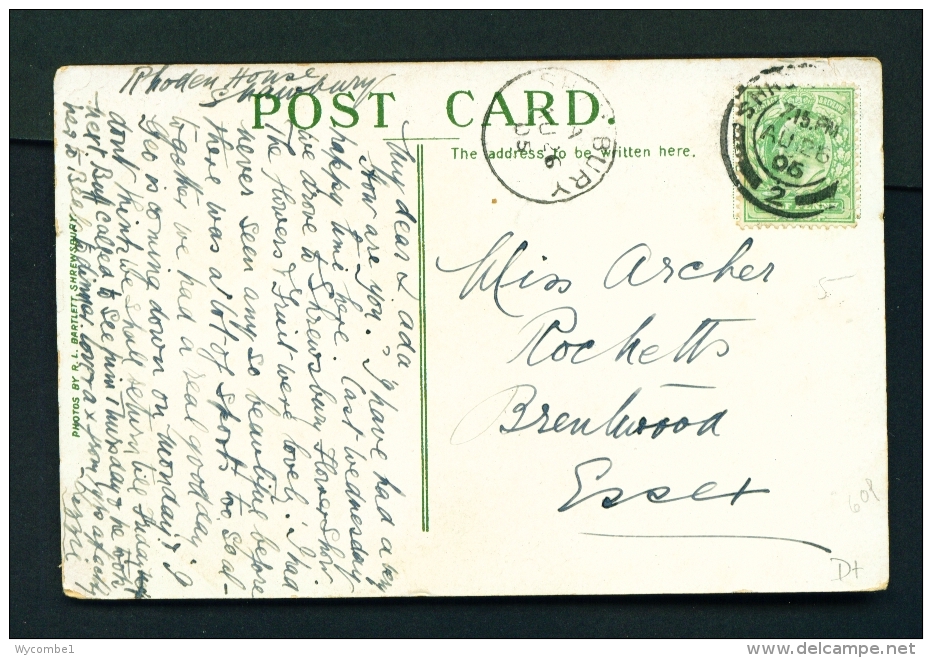 Rhoden House
Shawbury
POST CARD.
The address to be written here.
My dear Ada
How are you. I have had a very
happy time here. Last Wednesday
we drove to Shrewsbury Flower Show.
The flowers & fruit were lovely. I had
never seen any so beautiful before
there was a lot of sports too. So al-
together we had a real good day.
Geo is coming down on Monday. I
dont think we shall return till Tuesday
next. Bert called to see him Thursday & he took
her to
PHOTOS BY R. L. BARTLETT, SHREWSBURY.
BURY
AU 26
05
SHR
15 PM
AU 26
05
2
Miss Archer
Rochetts
Brentwood
Essex
608
D+
Wycombe1
delcampe.net